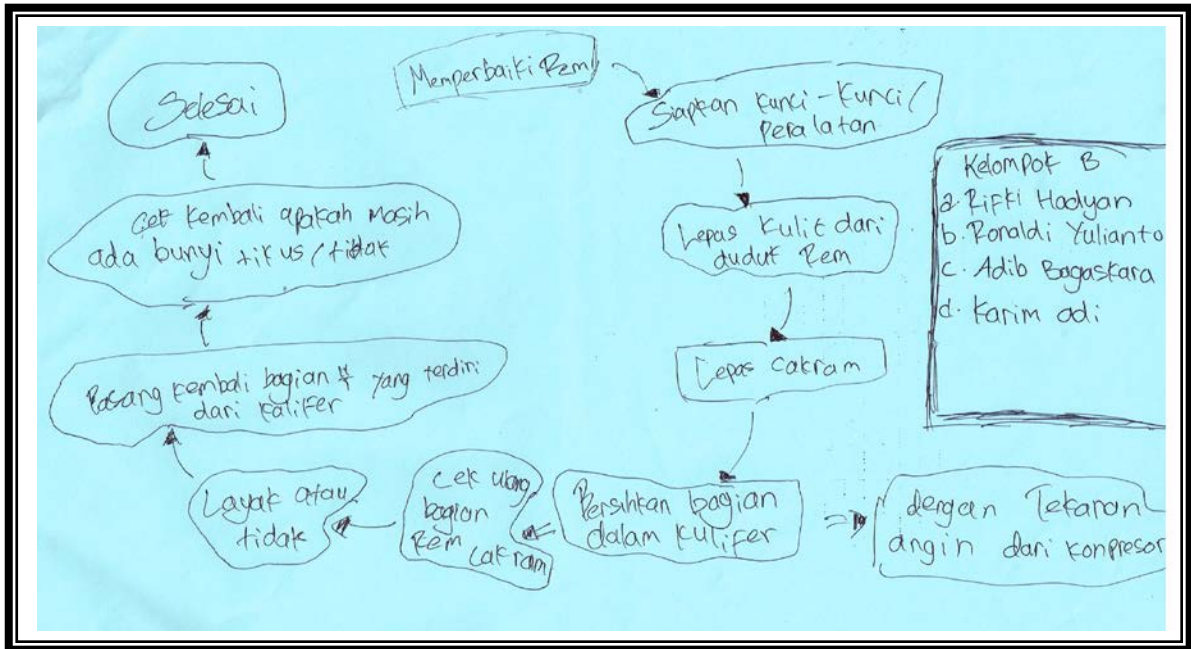 Memperbaiki Rem
Siapkan kunci-kunci/
peralatan
Lepas kulit dari
duduk Rem
Lepas cakram
Bersihkan bagian
dalam kulifer
dengan Tekanan
angin dari konpresor
cek ulang
bagian
Rem
cakram
Layak atau
tidak
Pasang kembali bagian yang terdiri
dari kalifer
Cek kembali apakah Masih
ada bunyi tikus/tidak
Selesai
Kelompok B
a. Rifki Hadyan
b. Ronaldi Yulianto
c. Adib Bagaskara
d. Karim adi